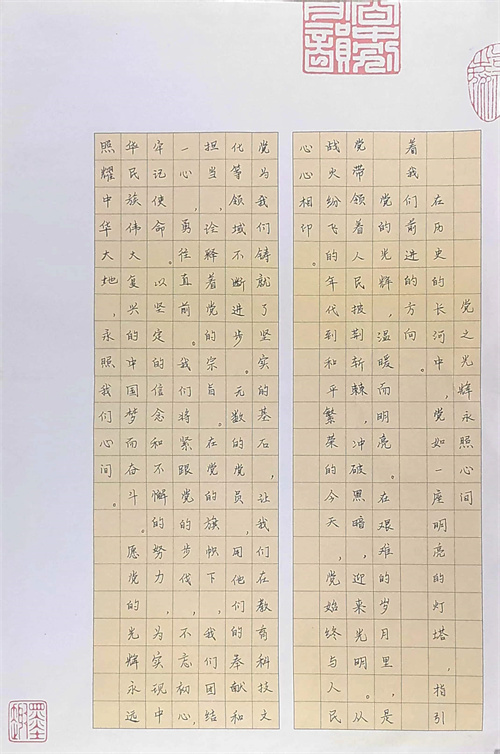 党之光辉,永照心间
在历史的长河中,党如一座明亮的灯塔,指引
着我们前进的方向。
党的光辉,温暖而明亮。在艰难的岁月里,是
党带领着人民披荆斩棘,冲破黑暗,迎来光明。从
战火纷飞的年代到和平繁荣的今天,党始终与人民
心心相印。
党为我们铸就了坚实的基石,让我们在教育科技文
化等领域不断进步。无数的党员,用他们的奉献和
担当,诠释着党的宗旨。在党的旗帜下,我们团结
一心,勇往直前。我们将紧跟党的步伐,不忘初心,
牢记使命。以坚定的信念和不懈的努力,为实现中
华民族伟大复兴的中国梦而奋斗。愿党的光辉永远
照耀中华大地,永照我们心间。